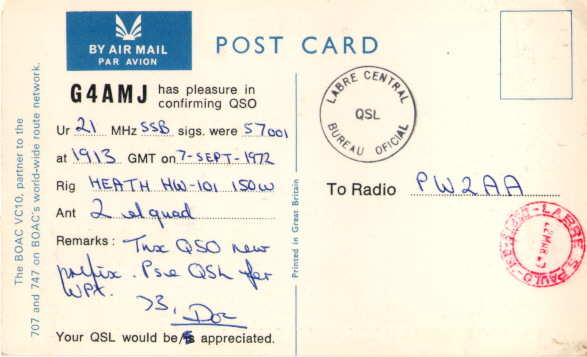 BY AIR MAIL
PAR AVION
POST CARD
G4AMJ has pleasure in
confirming QSO
Ur 21 MHz SSB sigs. were 57001
at 1913 GMT on 7-SEPT-1972
Rig HEATH HW-101 150W
Ant 2 el quad
Remarks: Tnx QSO new
prefix. Pse QSL for
WPX.
73, Doc
Your QSL would be appreciated.
The BOAC VC10, partner to the
707 and 747 on BOAC's world-wide route network.
Printed in Great Britain
LABRE CENTRAL
QSL
BUREAU OFICIAL
To Radio PW2AA
LABRE S. PAULO